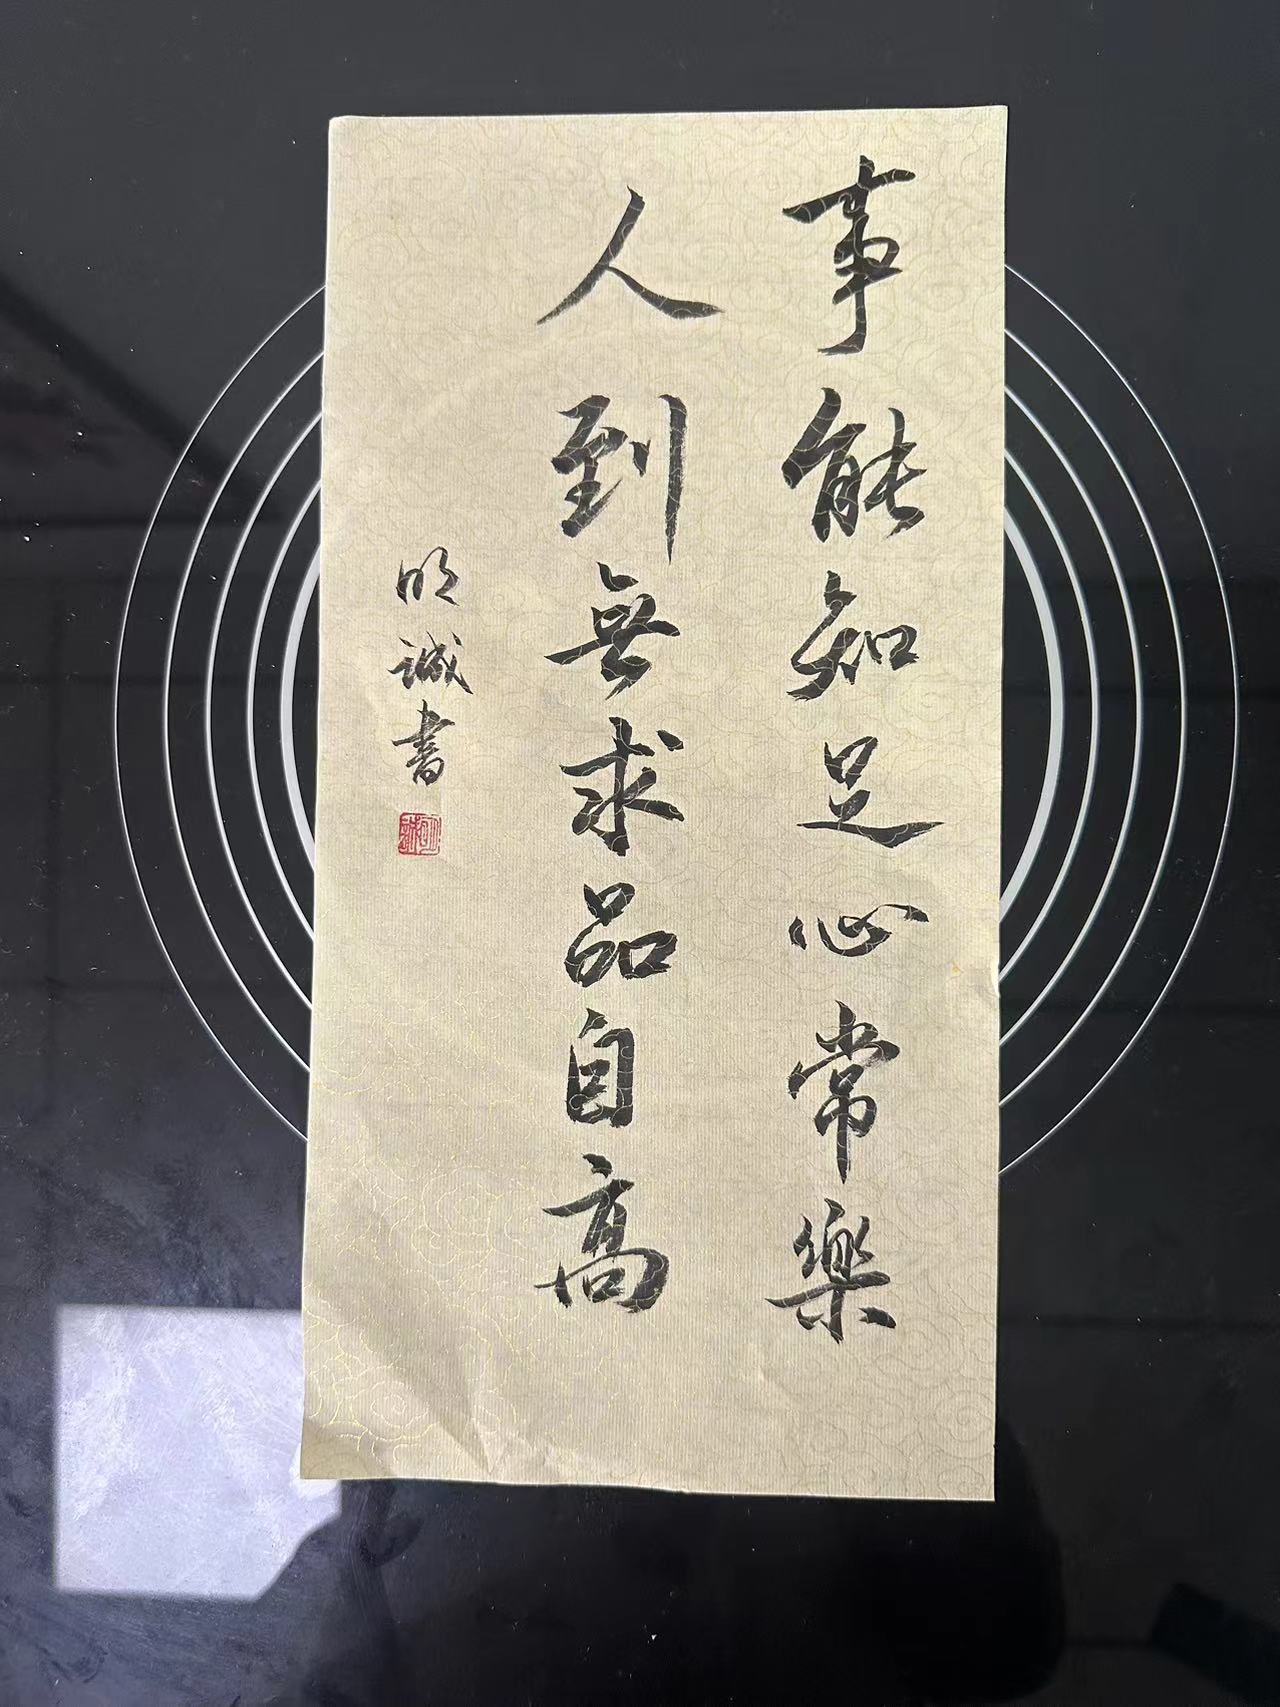 事能知足心常樂
人到無求品自高
明诚書